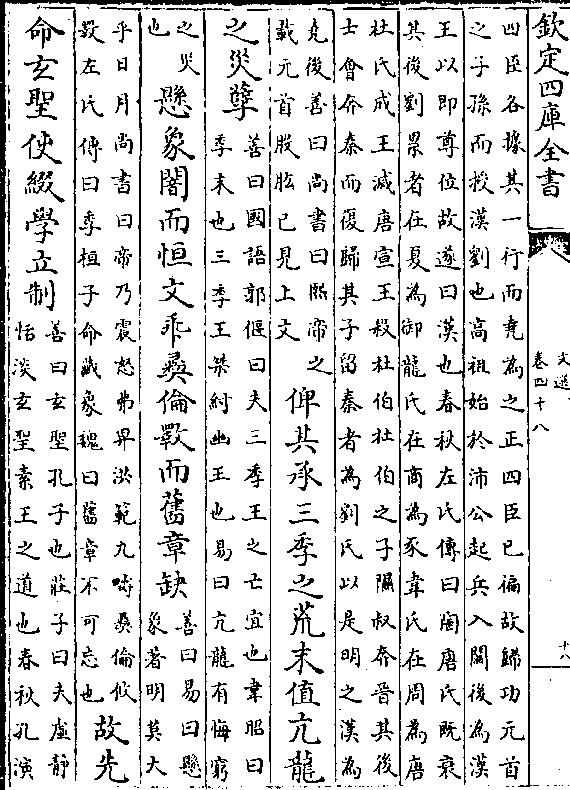 欽定四庫全書
文選
卷四十八
十八
四臣各據其一行而堯為之正四臣已徧故歸功元首
之子孫而授漢劉也高祖始於沛公起兵入關後為漢
王以即尊位故遂曰漢也春秋左氏傳曰陶唐氏既衰
其後劉累者在夏為御龍氏在商為豕韋氏在周為唐
杜氏成王滅唐宣王殺杜伯杜伯之子隰叔奔晉其後
士會奔秦而復歸其子留秦者為劉氏以是明之漢為
堯後善曰尚書曰熙帝之
載元首股肱已見上文
俾其承三季之荒末值亢龍
之災孽
善曰國語郭偃曰夫三季王之亡宜也韋昭曰
季末也三季王桀紂幽王也易曰亢龍有悔窮
之災
也
懸象闇而恒文乖彞倫斁而舊章缺
善曰易曰懸
象著明莫大
乎日月尚書曰帝乃震怒弗畀洪範九疇彞倫攸
斁左氏傳曰季桓子命藏象魏曰舊章不可忘也
故先
命玄聖使綴學立制
善曰玄聖孔子也莊子曰夫虛靜
恬淡玄聖素王之道也春秋孔演